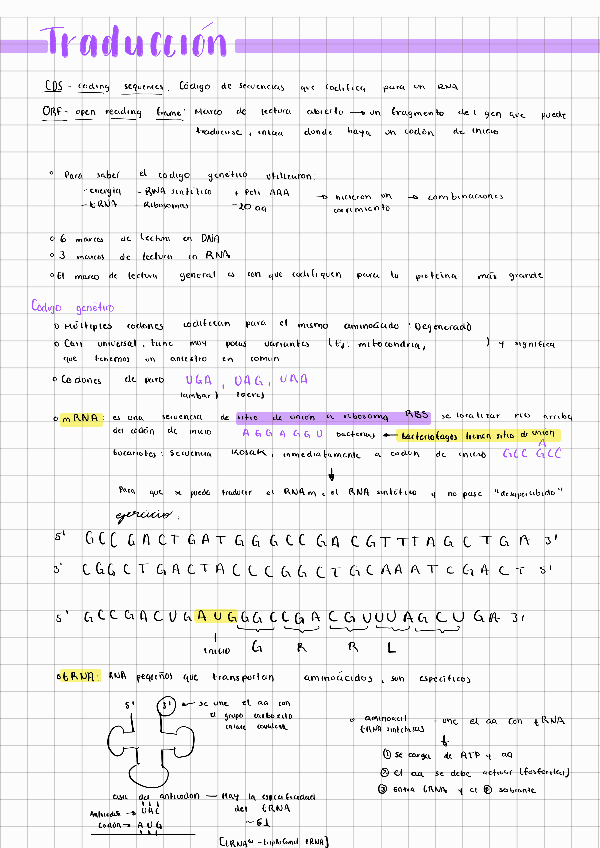 Traducción
CDS - coding sequences. Código de secuencias que codifica para un RNA
ORF - open reading frame: Marco de lectura abierto → un fragmento del gen que puede
traducirse, inicia donde haya un codón de inicio
° Para saber el codigo genético utilizaron:
- energía - RNA sintético + Poli AAA → hicieron un → combinaciones
- tRNA - Ribosomas - 20 aa corrimiento
o 6 marcos de lectura en DNA
o 3 marcos de lectura in RNA
o El marco de lectura general es con que codifiquen para la proteina más grande
Codigo genético
o Múltiples codones codifican para el mismo aminoácido (Degenerado)
o Casi universal, tiene muy pocas variantes (Ej: mitocondria, ) y significa
que tenemos un ancestro en común
o Codones de paro UGA, UAG, UAA
(ambar) (ocre)
o mRNA: es una secuencia de sitio de unión a ribosoma RBS se localizar río arriba
del codón de inicio AGGAGGU bacterias ← Bacteriofagos tienen sitio de unión
A
Eucariotes: Secuencia Kosak, inmediatamente a codon de inicio GCC GCC
Para que se pueda traducir el RNAm, el RNA sintético y no pase "desapercibido"
ejercicio:
5' GCCGACTGATGGGCCGACGTTTAGCTGA 3'
3' CGGCTGACTACCCGGCTGCAAATCGACT 5'
5' GCCGACUGAUGGGCCGACGUUUAGCUGA 3'
inicio G R R L
o tRNA: RNA pequeños que transportan aminoácidos, son específicos
5' 3' ← se une el aa con
el grupo carboxilo
enlace covalente
asa del anticodon — Hay la especificidad
del tRNA
~61
Anticodón → UAC
Codón → AUG
[tRNAᵂ - triptofano tRNA]
o aminoacil - une el aa con tRNA
tRNA sintetasas
① se carga de ATP y aa
② el aa se debe activar (fosforilar)
③ Entra tRNA y el ⓟ sobrante